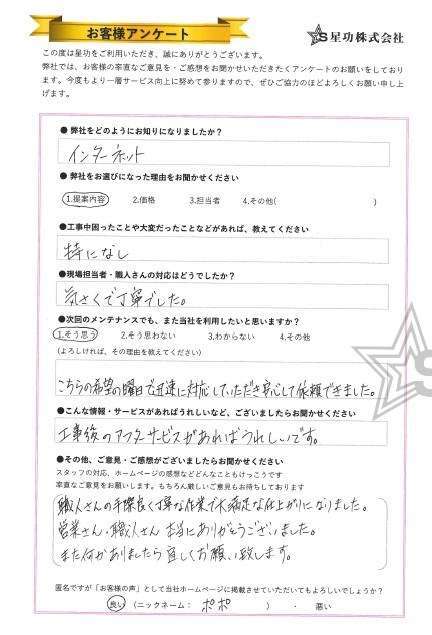 お客様アンケート
S星功株式会社
この度は星功をご利用いただき、誠にありがとうございます。
弊社では、お客様の率直なご意見を・ご感想をお聞かせいただきたくアンケートのお願いをしており
ます。今度もより一層サービス向上に努めて参りますので、ぜひご協力のほどよろしくお願い申し上
げます。
●弊社をどのようにお知りになりましたか？
インターネット
●弊社をお選びになった理由をお聞かせください
1.提案内容 2.価格 3.担当者 4.その他( )
●工事中困ったことや大変だったことなどがあれば、教えてください
特になし
●現場担当者・職人さんの対応はどうでしたか？
気さくで丁寧でした。
●次回のメンテナンスでも、また当社を利用したいと思いますか？
1.そう思う 2.そう思わない 3.わからない 4.その他
(よろしければ、その理由を教えてください)
こちらの希望の曜日で迅速に対応していただき安心して依頼できました。
●こんな情報・サービスがあればうれしいなど、ございましたらお聞かせください
工事後のアフターサービスがあればうれしいです。
●その他、ご意見・ご感想がございましたらお聞かせください
スタッフの対応、ホームページの感想などどんなこともけっこうです
率直なご意見をお願いします。もちろん厳しいご意見もお待ちしております
職人さんの手際良く丁寧な作業で大満足な仕上がりになりました。
営業さん・職人さん 本当にありがとうございました。
また何かありましたら宜しくお願い致します。
匿名ですが「お客様の声」として当社ホームページに掲載させていただいてもよろしいでしょうか？
良い (ニックネーム： ポポ ) ・ 悪い